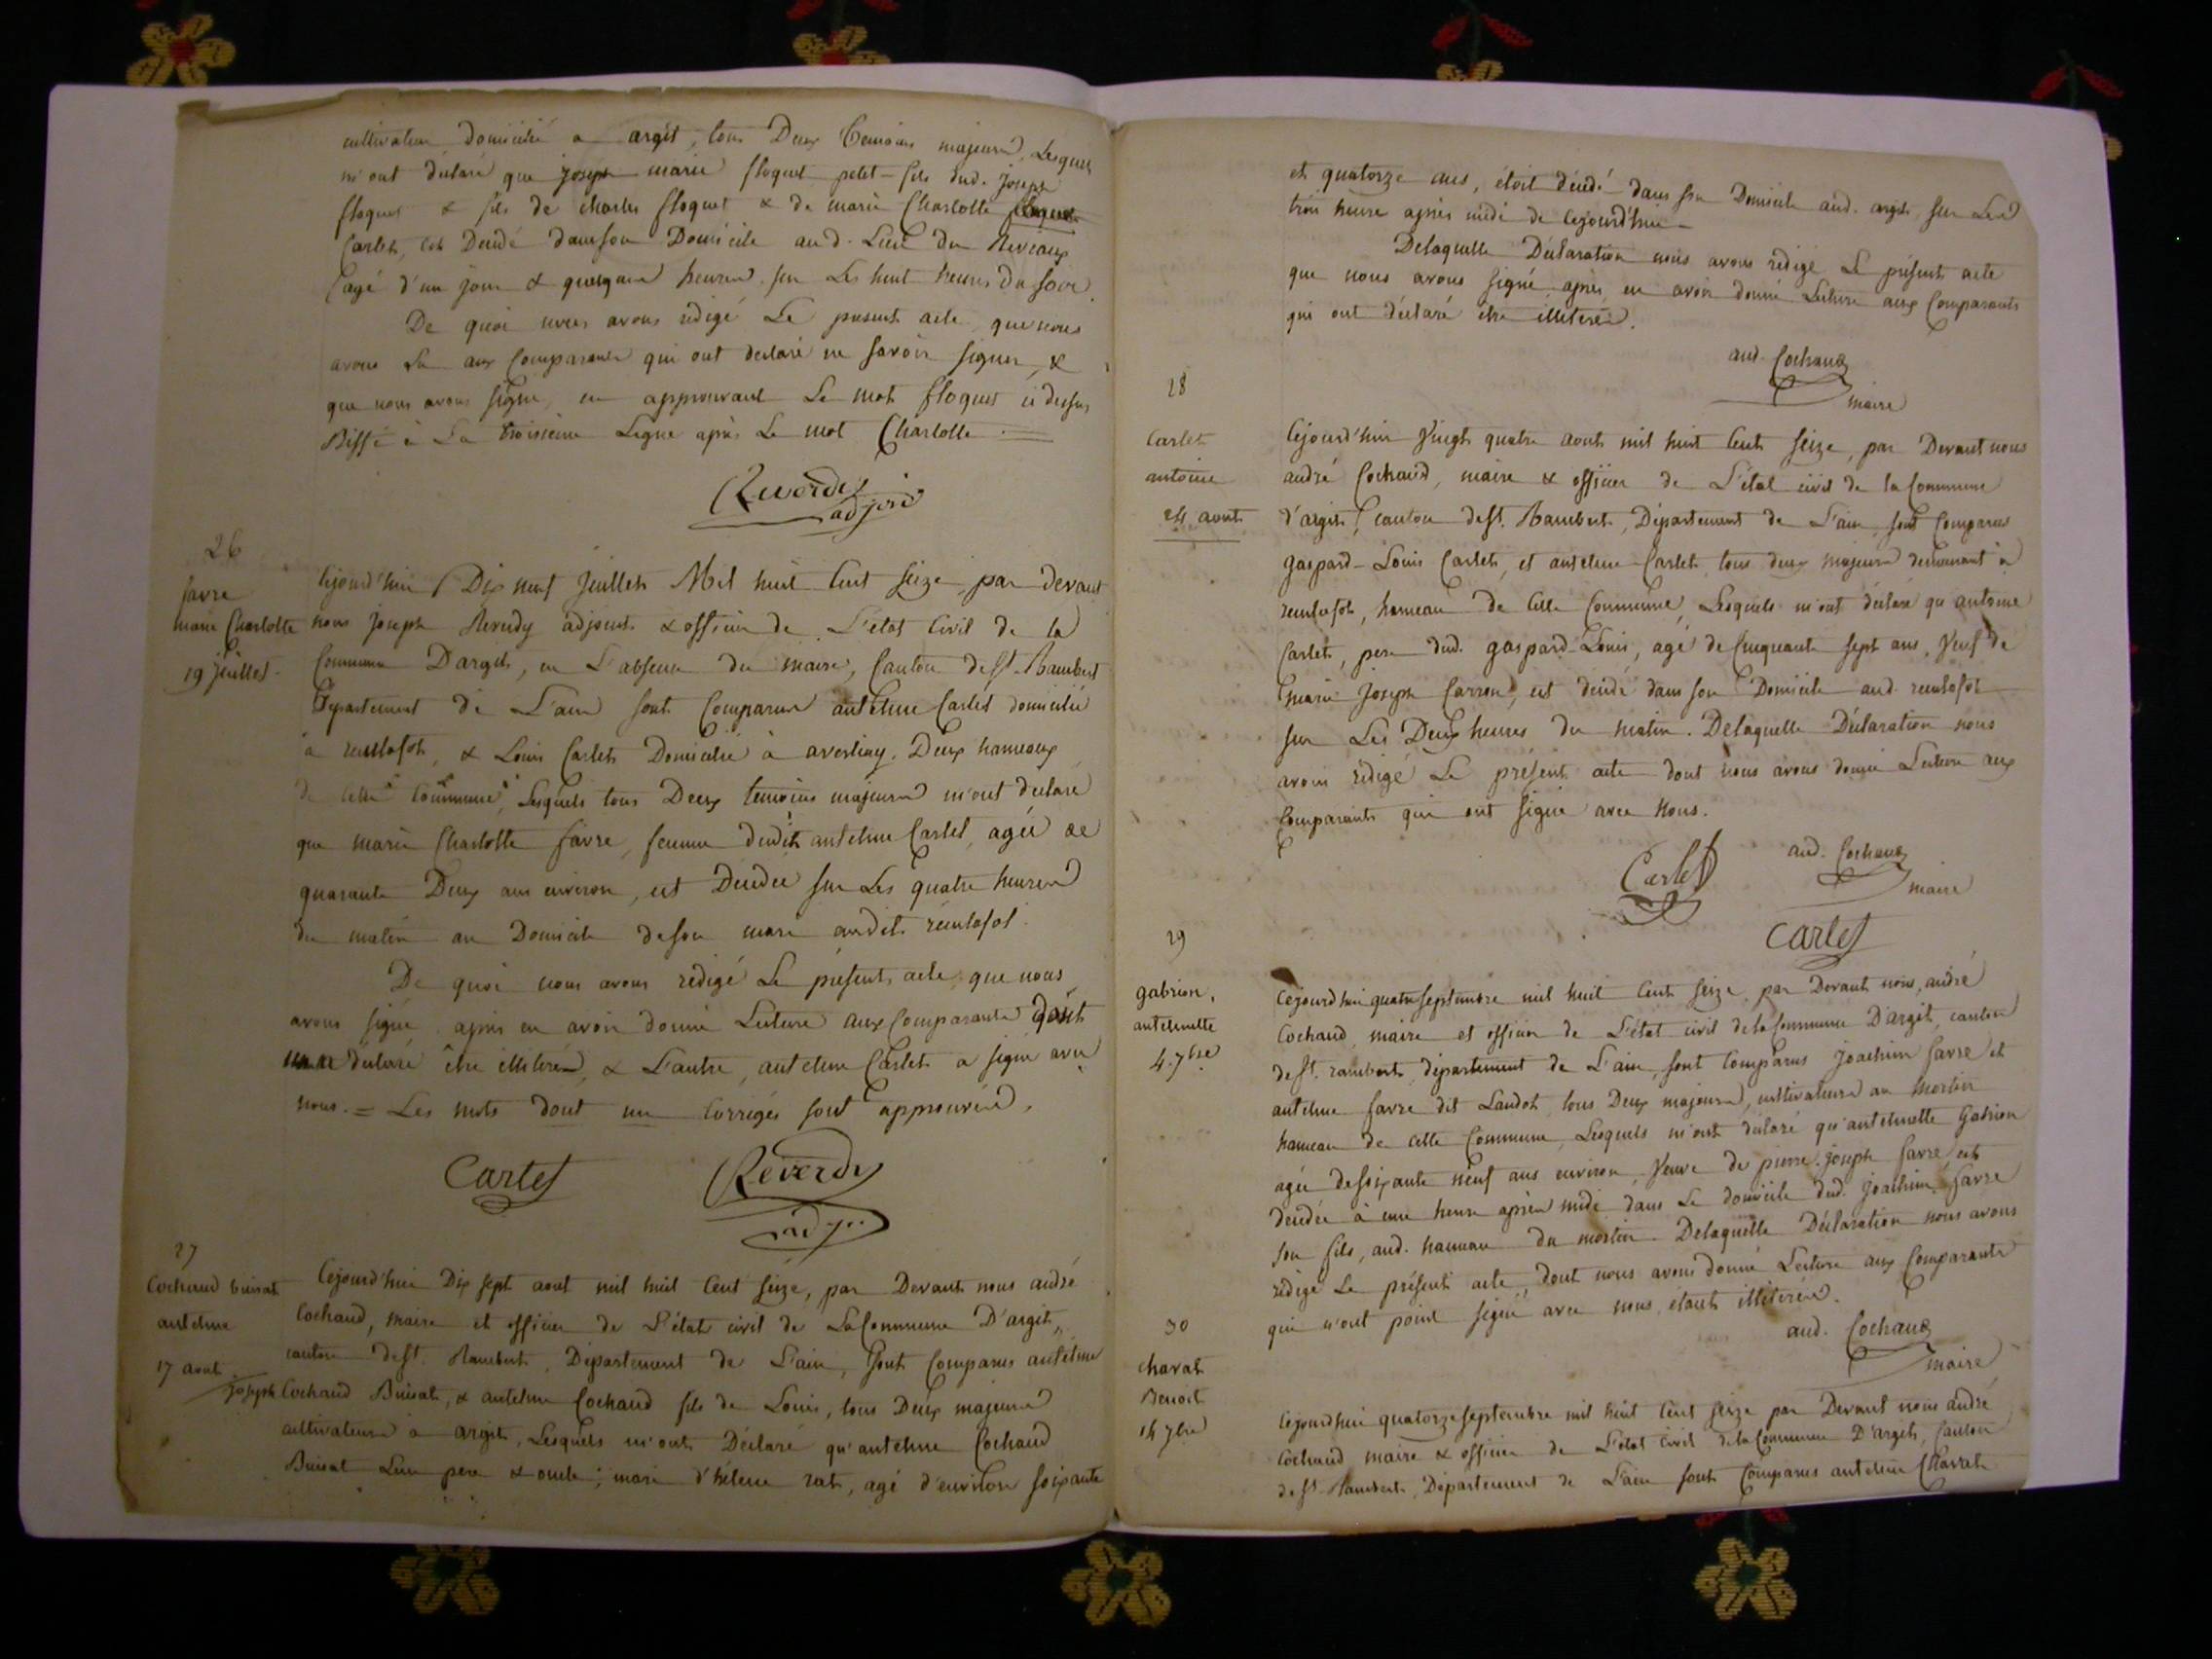 cultivateur domicilié a argit, tous Deux temoins majeurs, Lesquels
m'ont déclaré que joseph marie floquet petit-fils dud. Joseph
floquet & fils de charles floquet & de marie Charlotte floquet
Carlet, est Décédé dans son Domicile aud. Lieu du
agé d'un jour & quelques heures sur Les huit heures du soir.
De quoi nous avons rédigé Le present acte que nous
avons Lu aux Comparants qui ont declaré ne savoir signer, &
que nous avons signé, en approuvant Le mot floquet ci dessus
Biffé à La troisieme Ligne après Le mot Charlotte
Reverdy
adjoint
26
favre
marie Charlotte
19 juillet
Cejourd'hui Dix neuf Juillet Mil huit Cent seize, par devant
nous joseph Reverdy adjoint & officier de L'état Civil de la
Commune D'argit, en L'absence du maire, Canton de St. Rambert
Département de L'ain sont Comparus antelme Carlet domicilié
à reculafol, & Louis Carlet Domicilié à averliaz, Deux hameaux
de cette Commune, Lesquels tous Deux temoins majeurs m'ont declaré
que marie Charlotte favre, femme dudit antelme Carlet, agée de
quarante Deux ans environ, est Décédée sur Les quatre heures
du matin au Domicile de son mari audit réculafol.
De quoi nous avons rédigé Le présent acte que nous
avons signé après en avoir donné Lecture aux Comparants dont
un a déclaré être illitéré, & L'autre, antelme Carlet a signé avec
nous. = Les mots dont un corrigés sont approuvés.
Carlet Reverdy
adj.
27
Cochaud buisat
antelme
17 aout
Cejourd'hui Dix sept aout mil huit Cent seize, par Devant nous andré
Cochaud, maire et officier de L'état civil de La Commune D'argit,
canton de St. Rambert, Département de L'ain, sont Comparus antelme
joseph Cochaud Buisat, & antelme Cochaud fils de Louis, tous Deux majeurs
cultivateurs à argit, Lesquels m'ont Déclaré qu'antelme Cochaud
Buisat Leur pere & oncle, mari d'hélene rat, agé d'environ soixante
et quatorze ans, étoit décédé dans son Domicile aud. argit, sur Les
trois heure après midi de cejourd'hui
Delaquelle Déclaration nous avons rédigé Le présent acte
que nous avons signé après en avoir donné Lecture aux Comparants
qui ont déclaré être illiterés.
and. Cochaud
maire
28
Carlet
antoine
24 aout
Cejourd'hui Vingt quatre aout mil huit Cent seize, par Devant nous
andré Cochaud, maire & officier de L'état civil de la Commune
d'argit, canton de St. Rambert, Département de L'ain, sont Comparus
gaspard-Louis Carlet, et antelme Carlet, tous deux majeurs demeurant à
reculafol, hameau de cette Commune, Lesquels m'ont déclaré qu'antoine
Carlet, pere dud. gaspard-Louis, agé de Cinquante sept ans, Veuf de
marie Joseph Carron, est décédé dans son Domicile aud. reculafol
sur Les Deux heures du matin. Delaquelle Déclaration nous
avons rédigé Le présent acte dont nous avons donné Lecture aux
Comparants qui ont signé avec Nous.
Carlet and. Cochaud
maire
Carlet
29
gabrion,
antelmette
4. 7bre
Cejourd'hui quatre septembre mil huit Cent seize, par Devant nous, andré
Cochaud, maire et officier de L'état civil de la Commune D'argit, canton
de St. rambert, département de L'ain, sont Comparus Joachim favre et
antelme favre dit Landot, tous Deux majeurs, cultivateurs au mortin
hameau de cette Commune, Lesquels m'ont déclaré qu'antelmette Gabrion
agée de soixante neuf ans environ, Veuve de pierre joseph favre, est
décédée à une heure après midi dans Le domicile dud. Joachim favre
son fils, aud. hameau du mortin. Delaquelle Déclaration nous avons
rédigé Le présent acte, dont nous avons donné Lecture aux Comparants
qui n'ont point signé avec nous, étant illitérés.
and. Cochaud
maire
30
Charat
Benoit
14 7bre
Cejourd'hui quatorze septembre mil huit Cent seize par Devant nous andré
Cochaud maire & officier de L'état Civil de la Commune D'argit, Canton
de St. Rambert, Département de L'ain sont Comparus antelme Charat